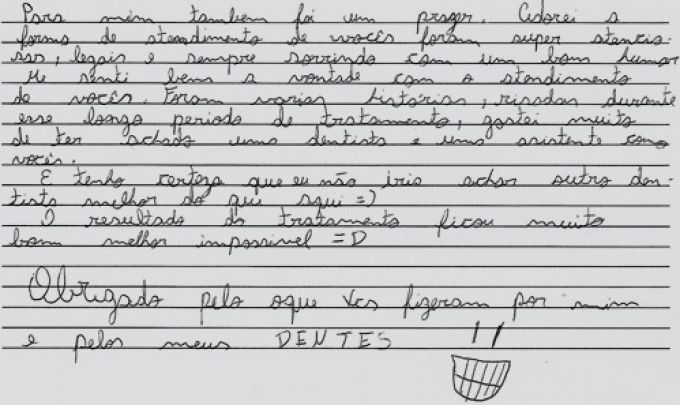 Para mim tambem foi um prazer. Adorei a
forma de atendimento de vocês foram super atencio-
sas, legais e sempre sorrindo com um bom humor
Me senti bem a vontade com o atendimento
de vocês. Foram varias histórias, risadas durante
esse longo periodo de tratamento, gostei muito
de ter achado uma dentista e uma asistente como
vocês.
E tenho certeza que eu não iria achar outra den-
tista melhor do que aqui =)
O resultado do tratamento ficou muito
bom melhor impossivel =D
Obrigado pelo oque vcs fizeram por mim
e pelos meus DENTES